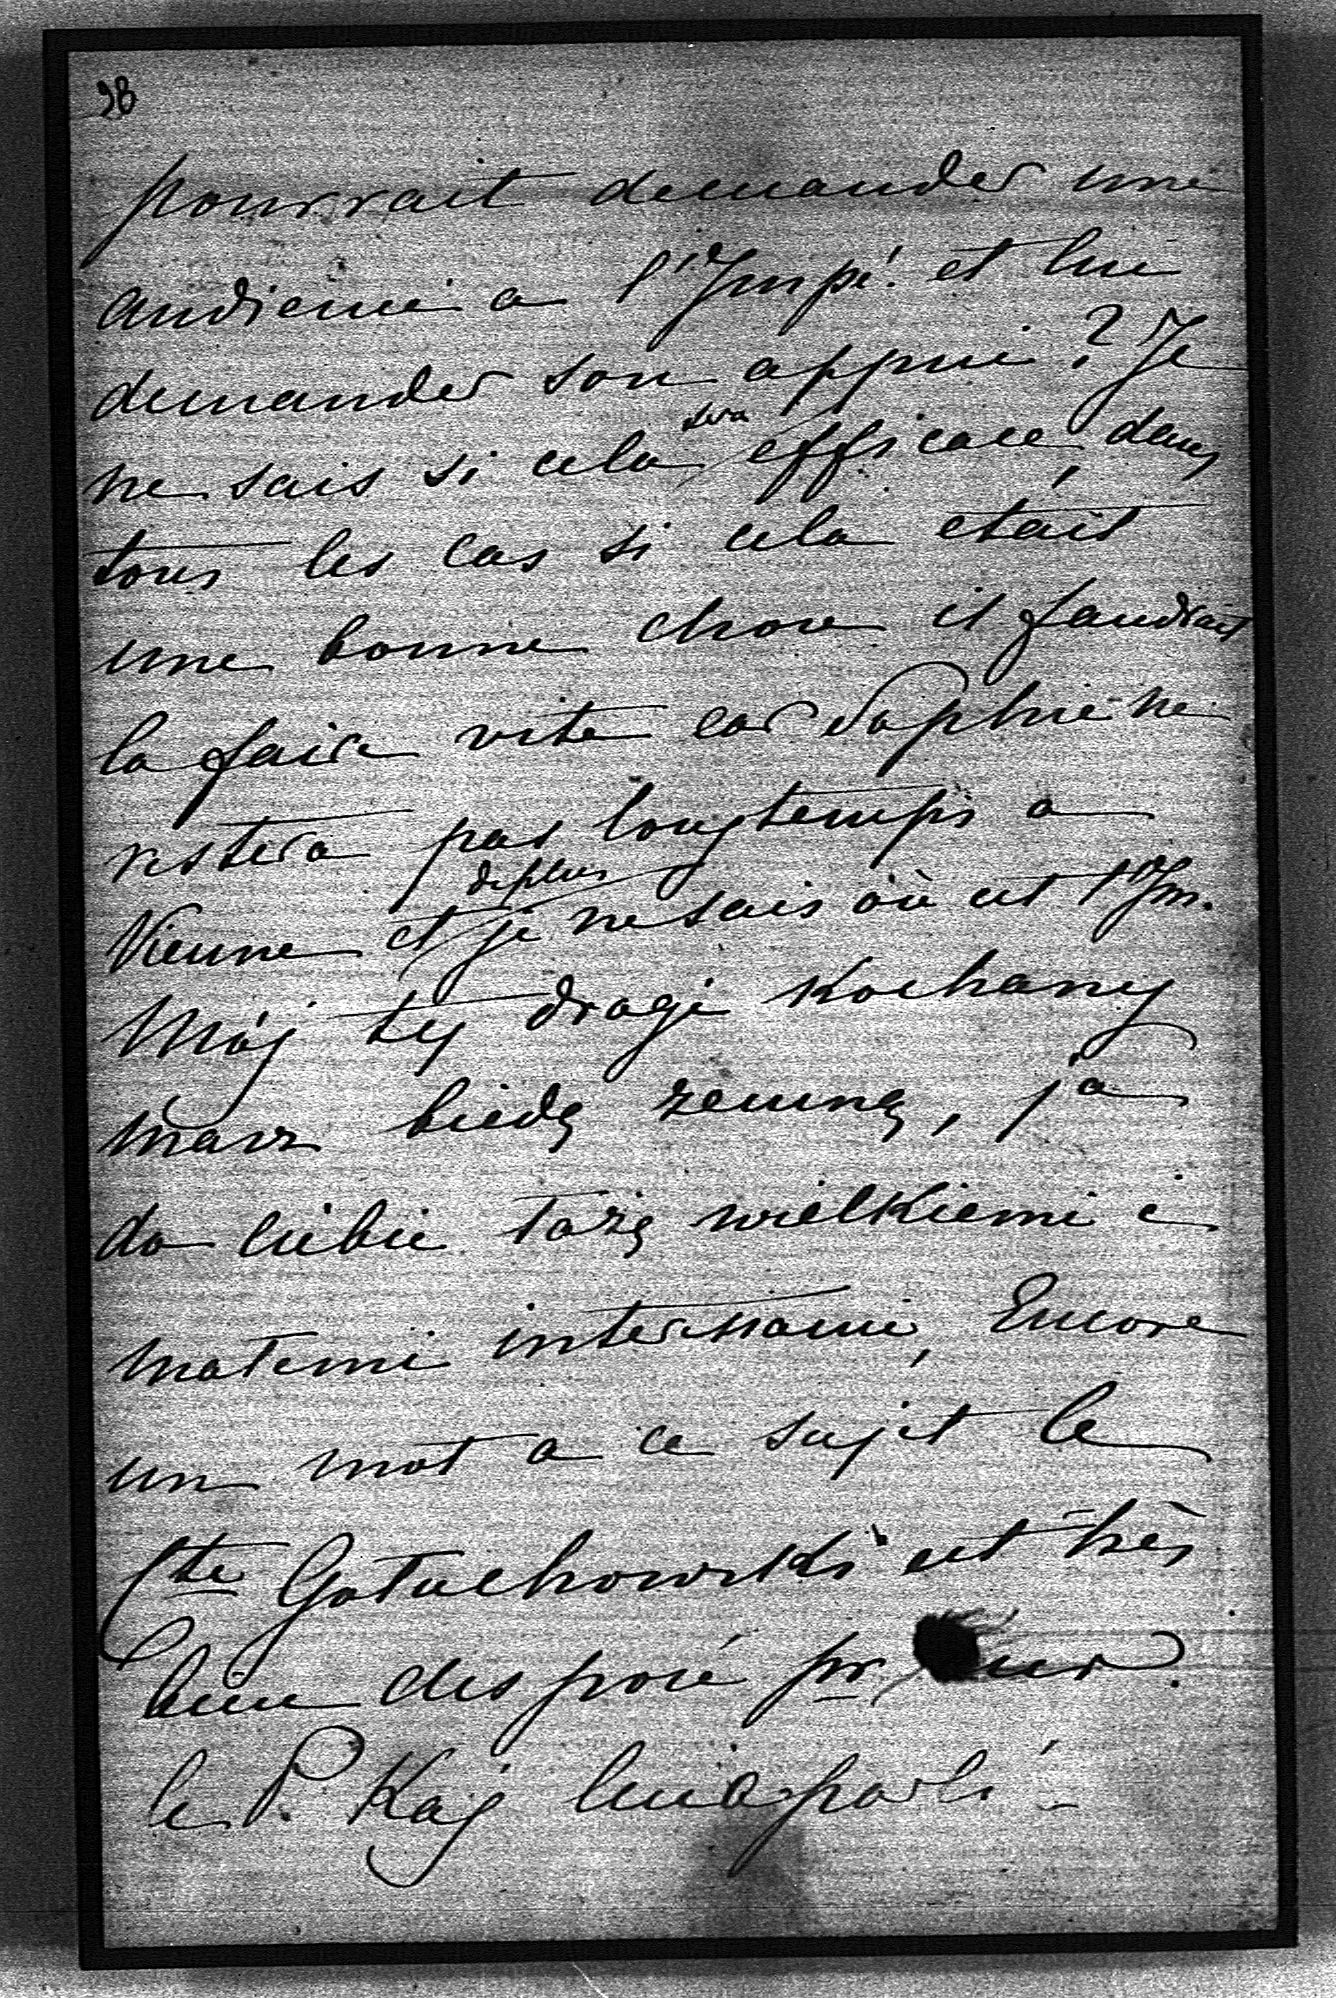 98
pourrait demander une
audience a l'Impé. et lui
demander son appui? Je
ne sais si cela sera efficace, dans
tous les cas si cela était
une bonne chose il faudrait
la faire vite car Sophie ne
restera pas longtemps a
Vienne et de plus je ne sais où est l'Im.
Mój ty drogi kochany
masz biedę zemną, ja
do ciebie łażę wielkiemi i
małemi interessami, Encore
un mot a ce sujet le
Cte Gołuchowski est très
bien disposé pr
le P. Kaj lui a parlé